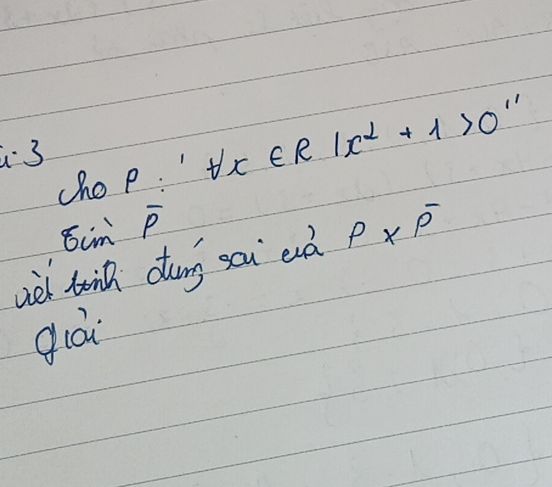 i.3
Cho P : ' ∀x ∈ R | x² + 1 > 0 "
Tìm P̄
viết tính đúng sai của P x P̄
giải